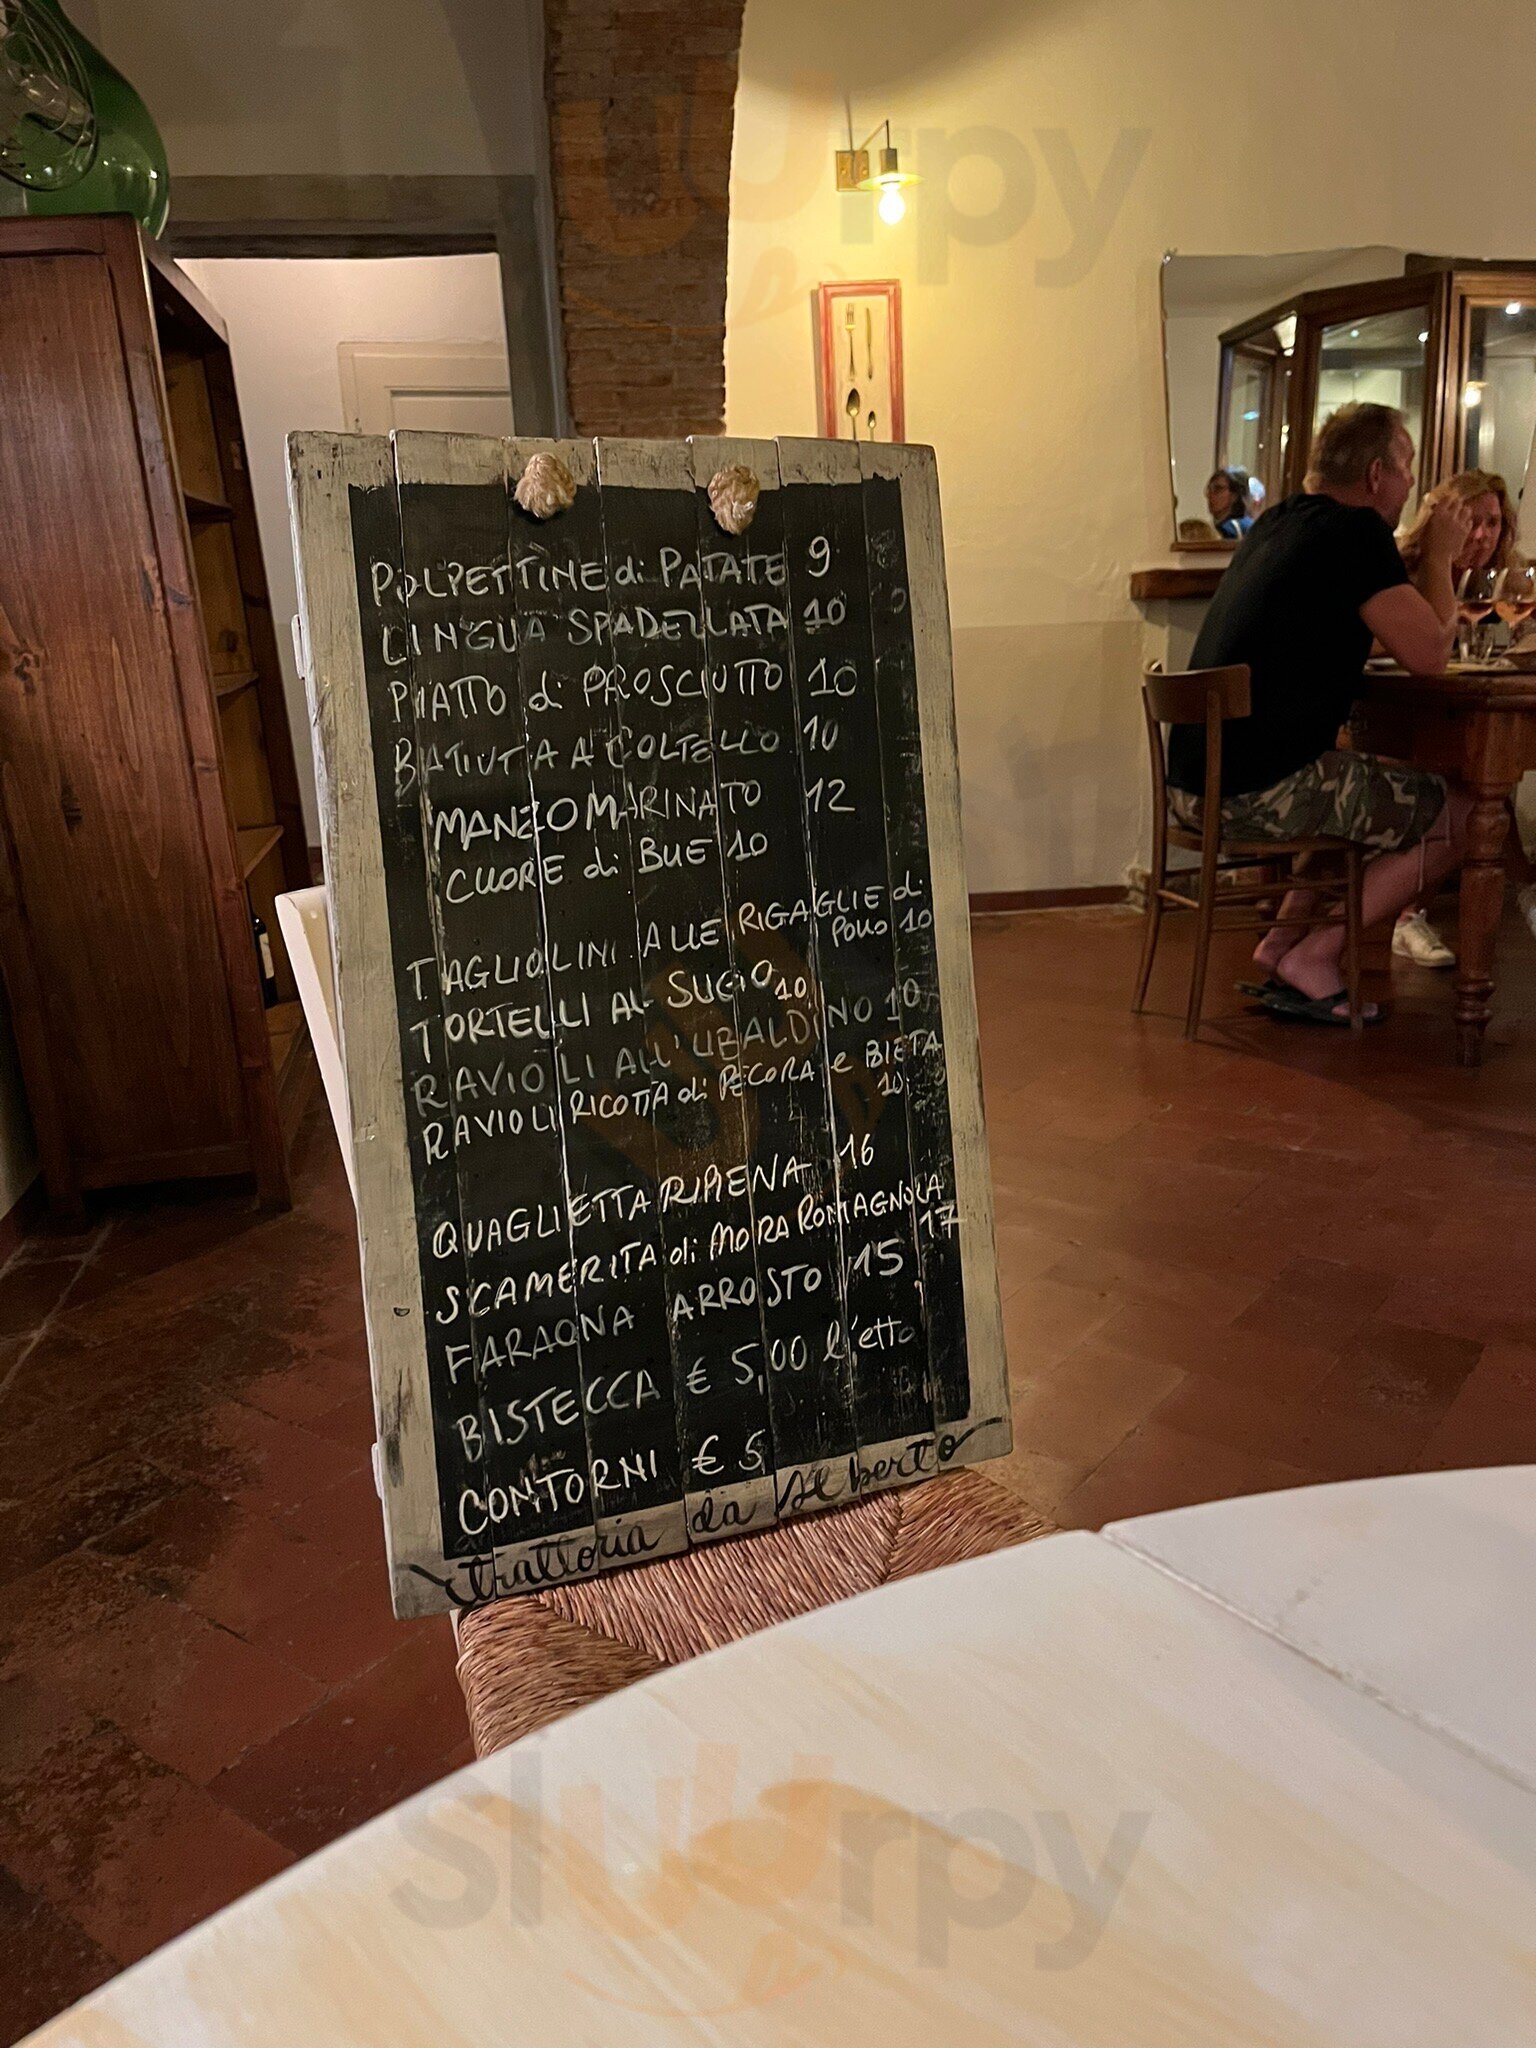 POLPETTINE di PATATE 9
LINGUA SPADELLATA 10
PIATTO di PROSCIUTTO 10
BATTUTA A COLTELLO 10
MANZO MARINATO 12
CUORE di BUE 10
TAGLIOLINI ALLE RIGAGLIE di
POLLO 10
TORTELLI AL SUGO 10
RAVIOLI ALL'UBALDINO 10
RAVIOLI RICOTTA di PECORA e BIETA
10
QUAGLIETTA RIPIENA 16
SCAMERITA di MORA ROMAGNOLA
17
FARAONA ARROSTO 15
BISTECCA € 5,00 l'etto
CONTORNI € 5
trattoria da Alberto
slurpy